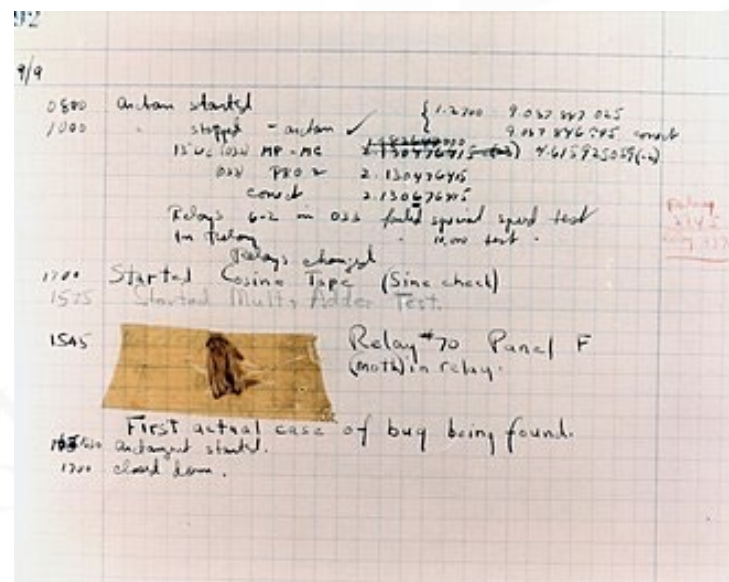 92
9/9
0800 antan started
1000 " stopped - antan ✓ { 1.2700 9.037 847 025
9.037 846 995 correct
13"uc (032) MP - MC 2.130476415 (-3) 4.615925059 (-2)
(033) PRO 2 2.130476415
correct 2.130676415
Relays 6-2 in 033 failed special speed test
in relay " 10.000 test.
Relays changed
1700 Started Cosine Tape (Sine check)
1525 Started Mult+ Adder Test.
1545 Relay #70 Panel F
(moth) in relay.
First actual case of bug being found.
antangent started.
1700 closed down.
Relay